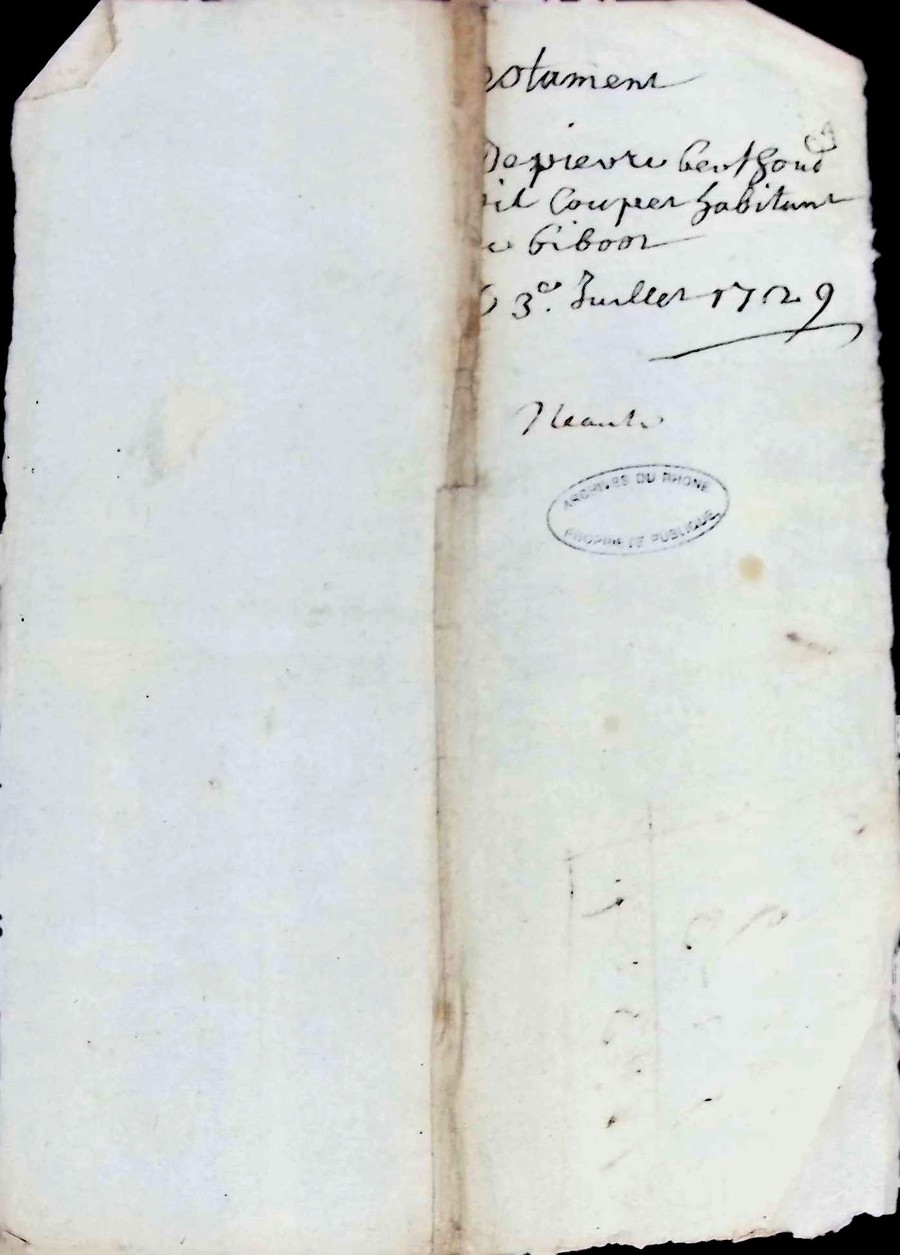 estament
De pierre berthoud
dit Couper habitant
a Giboor
3e. Juillet 1729
Neant
ARCHIVES DU RHONE
PROPRIETE PUBLIQUE